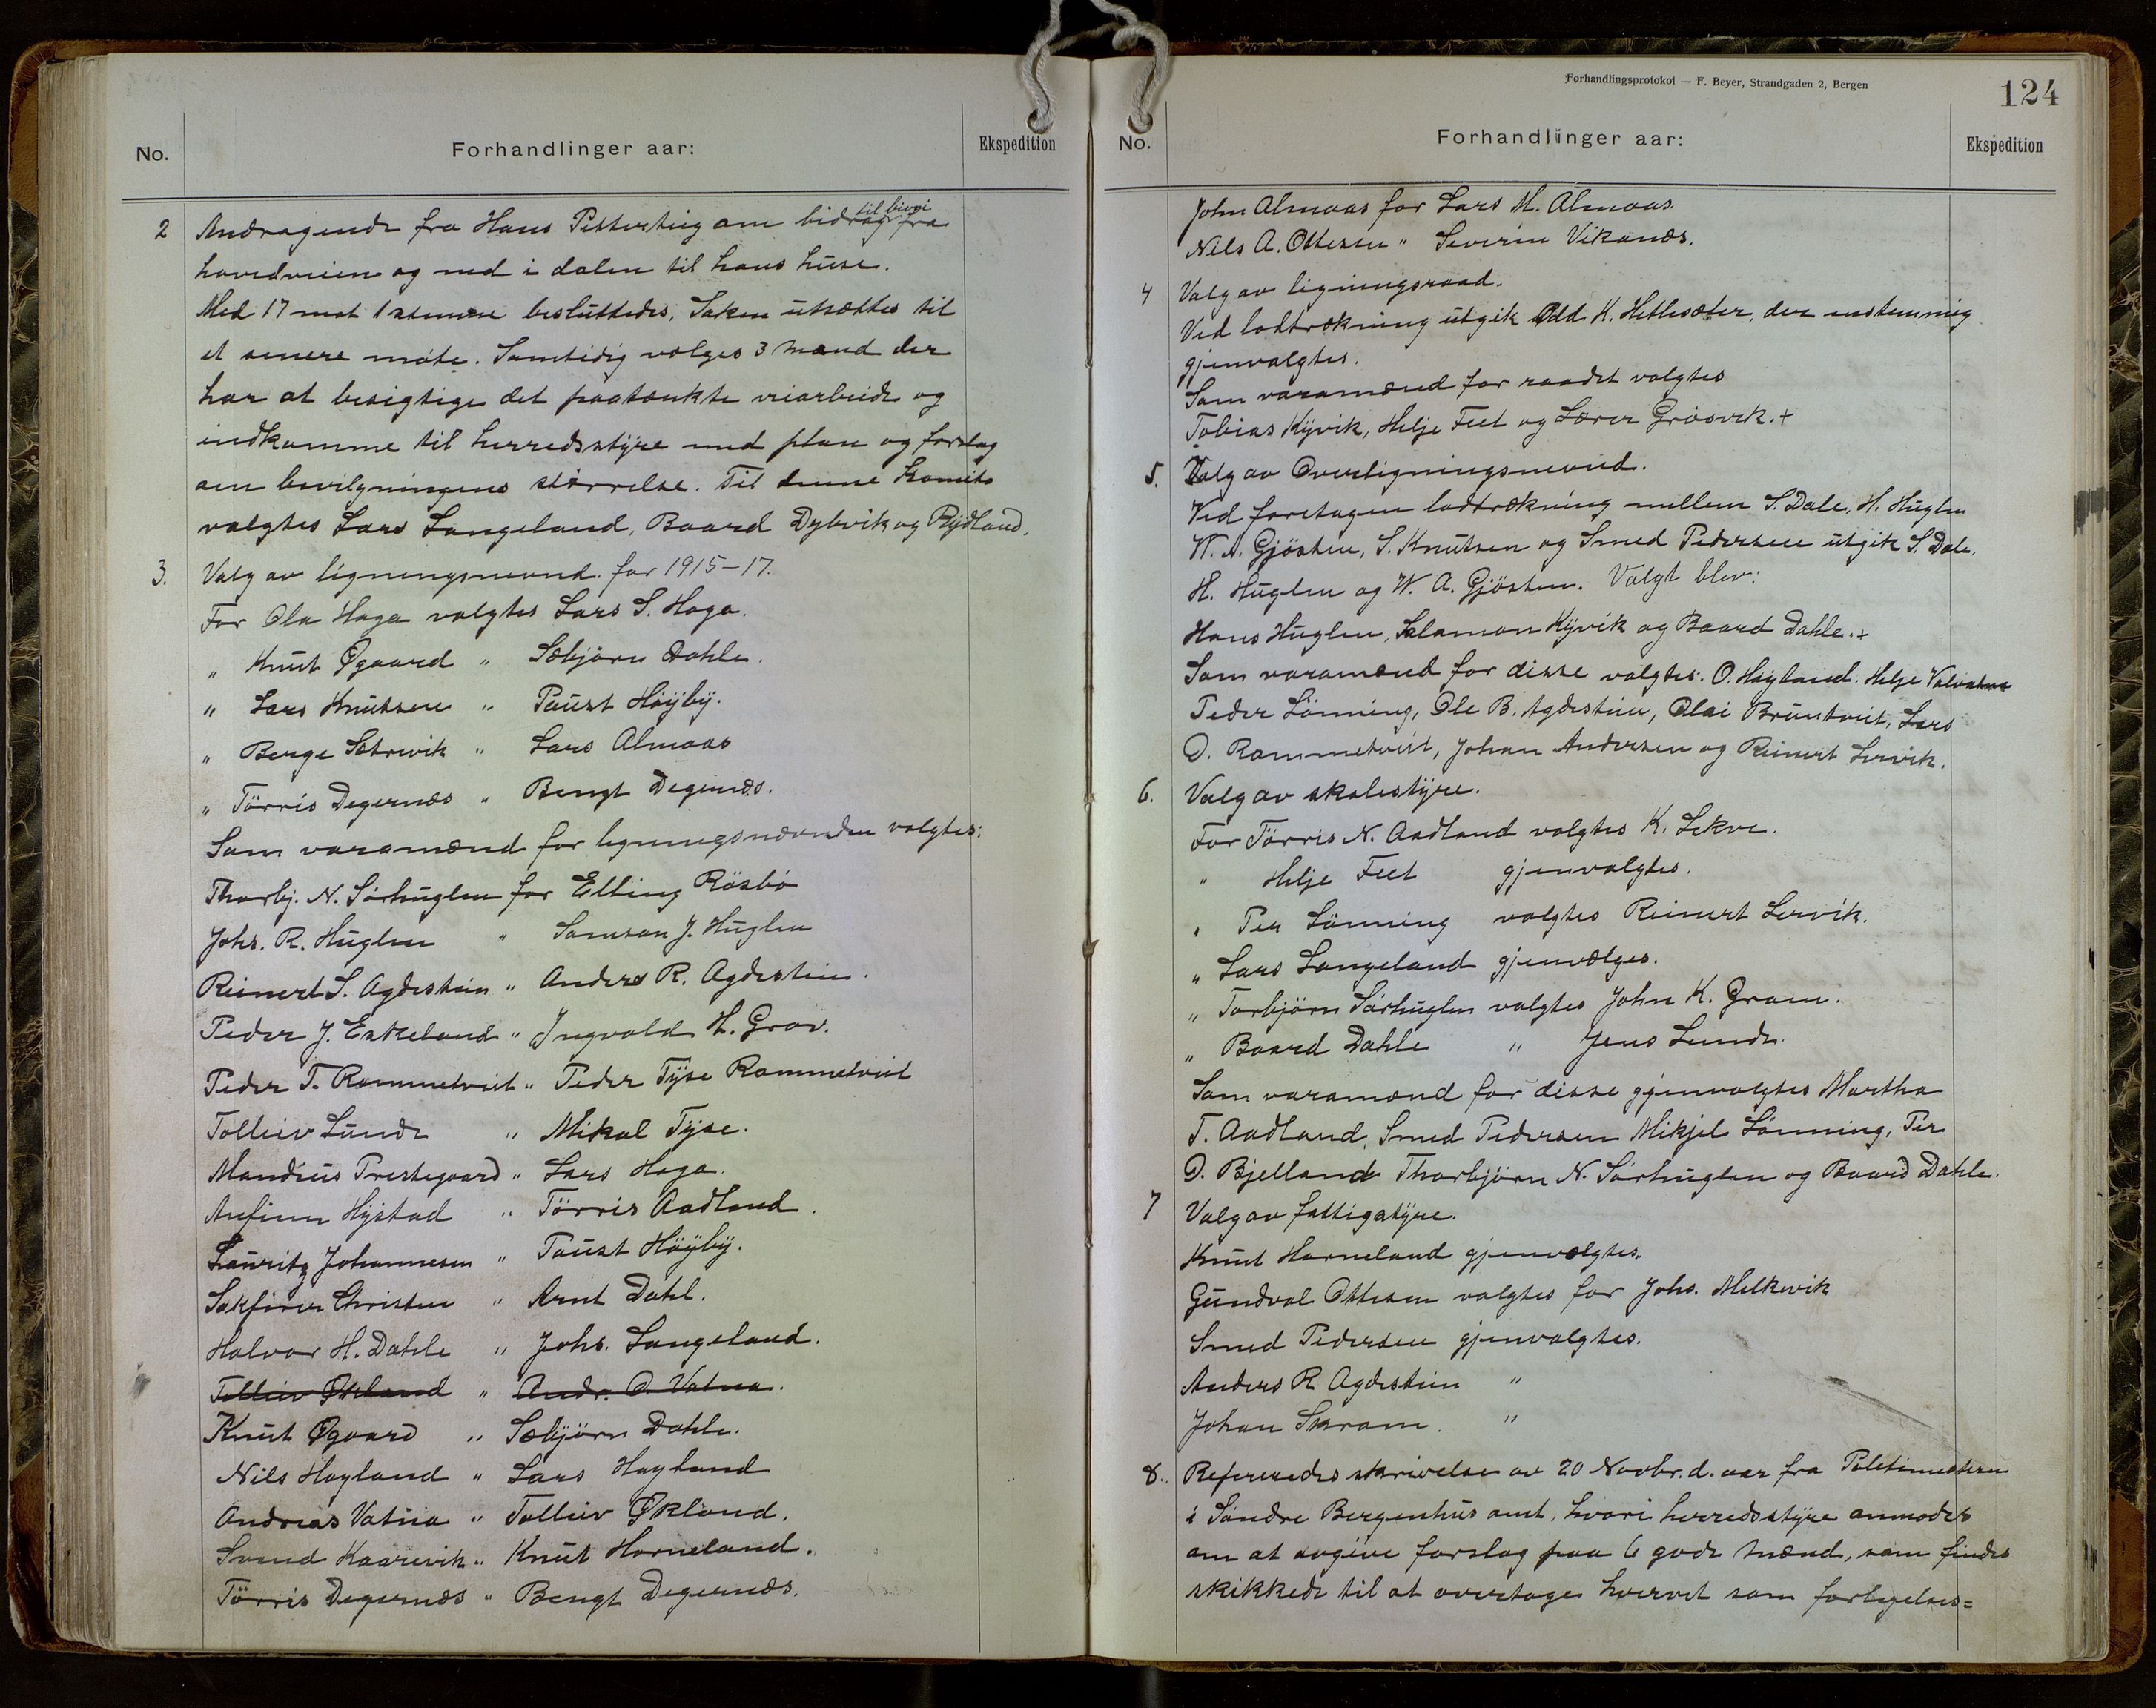 No.
Forhandlinger aar:
Ekspedition
2 Andragende fra Hans Pettersteig om bidrag til bivei fra
hovedveien og ned i dalen til hans huse.
Med 17 mot 1 stemme besluttedes, Saken utsættes til
et senere møte. Samtidig vælges 3 mænd der
har at besigtige det paatænkte veiarbeide og
indkomme til herredsstyre med plan og forslag
om bevilgningens størrelse. Til denne Komite
valgtes Lars Langeland, Baard Dybvik og Rydland.
3. Valg av ligningsnevnd. for 1915-17.
For Ola Haga valgtes Lars S. Haga.
" Knut Øgaard " Sæbjørn Dahle.
" Lars Knutsen " Paust Høyby.
" Berge Sætrevik " Lars Almaas
" Tørris Degernæs " Bengt Degernæs.
Som varamænd for ligningsnævnden valgtes:
Thorbj. N. Sørhuglen for Elling Røsbø
Johs. R. Huglen " Samson J. Huglen
Reinert S. Agdestein " Anders R. Agdestein.
Peder J. Eskeland " Ingvald H. Grov.
Peder T. Rommetveit " Peder Tyse Rommetveit
Tolleiv Lunde " Mikal Tyse.
Mandius Prestegaard " Lars Haga.
Anfinn Hystad " Tørris Aadland.
Lauritz Johannesen " Paust Høyby.
Sakfører Christen " Arnt Dahl.
Halvor H. Dahle " Johs. Langeland.
Tolleiv Økland " Andr. O. Vatna.
Knut Øgaard " Sæbjørn Dahle.
Nils Høyland " Lars Høyland
Andreas Vatna " Tolleiv Økland.
Svend Kaarevik " Knut Horneland.
Tørris Degernæs " Bengt Degernæs.
Forhandlingsprotokol — F. Beyer, Strandgaden 2, Bergen
124
No.
Forhandlinger aar:
Ekspedition
John Almaas for Lars M. Almaas.
Nils A. Ottesen " Severin Vikanæs.
4 Valg av ligningsraad.
Ved lodtrækning utgik Odd K. Hetlesæter, der enstemmig
gjenvalgtes.
Som varamænd for raadet valgtes
Tobias Kyvik, Helje Feet og Lærer Grøsvik. +
5. Valg av Overligningsnevnd.
Ved foretagen lodtrækning mellem S. Dale, H. Huglen
W. A. Gjøsten, S. Knutsen og Smed Pedersen utgik S. Dale,
H. Huglen og W. A. Gjøsten. Valgt blev:
Hans Huglen, Salamon Kyvik og Baard Dahle. +
Som varamænd for disse valgtes: O. Høyland. Helje
Peder Lønning, Ole B. Agdestein, Olai Bruntveit, Lars
O. Rommetveit, Johan Andersen og Reinert Lervik.
6. Valg av skolestyre.
For Tørris N. Aadland valgtes K. Lekve.
" Helje Feet gjenvalgtes.
" Per Lønning valgtes Reinert Lervik.
" Lars Langeland gjenvælges.
" Torbjørn Sørhuglen valgtes John K. Gram.
" Baard Dahle " Jens Lunde.
Som varamænd for disse gjenvalgtes Martha
T. Aadland, Smed Pedersen Mikjel Lønning, Per
O. Bjelland Thorbjørn N. Sørhuglen og Baard Dahle.
7 Valg av fattigstyre.
Knut Horneland gjenvælgtes.
Gundval Ottesen valgtes for Johs. Melkevik
Smed Pedersen gjenvalgtes.
Anders R Agdestein "
Johan Skram. "
8. Refereredes skrivelse av 20 Novbr. d. aar fra Politimesteren
i Søndre Bergenhus amt, hvori herredsstyre anmodes
om at avgive forslag paa 6 gode mænd, som findes
skikkede til at overtage hvervet som forlyelses=